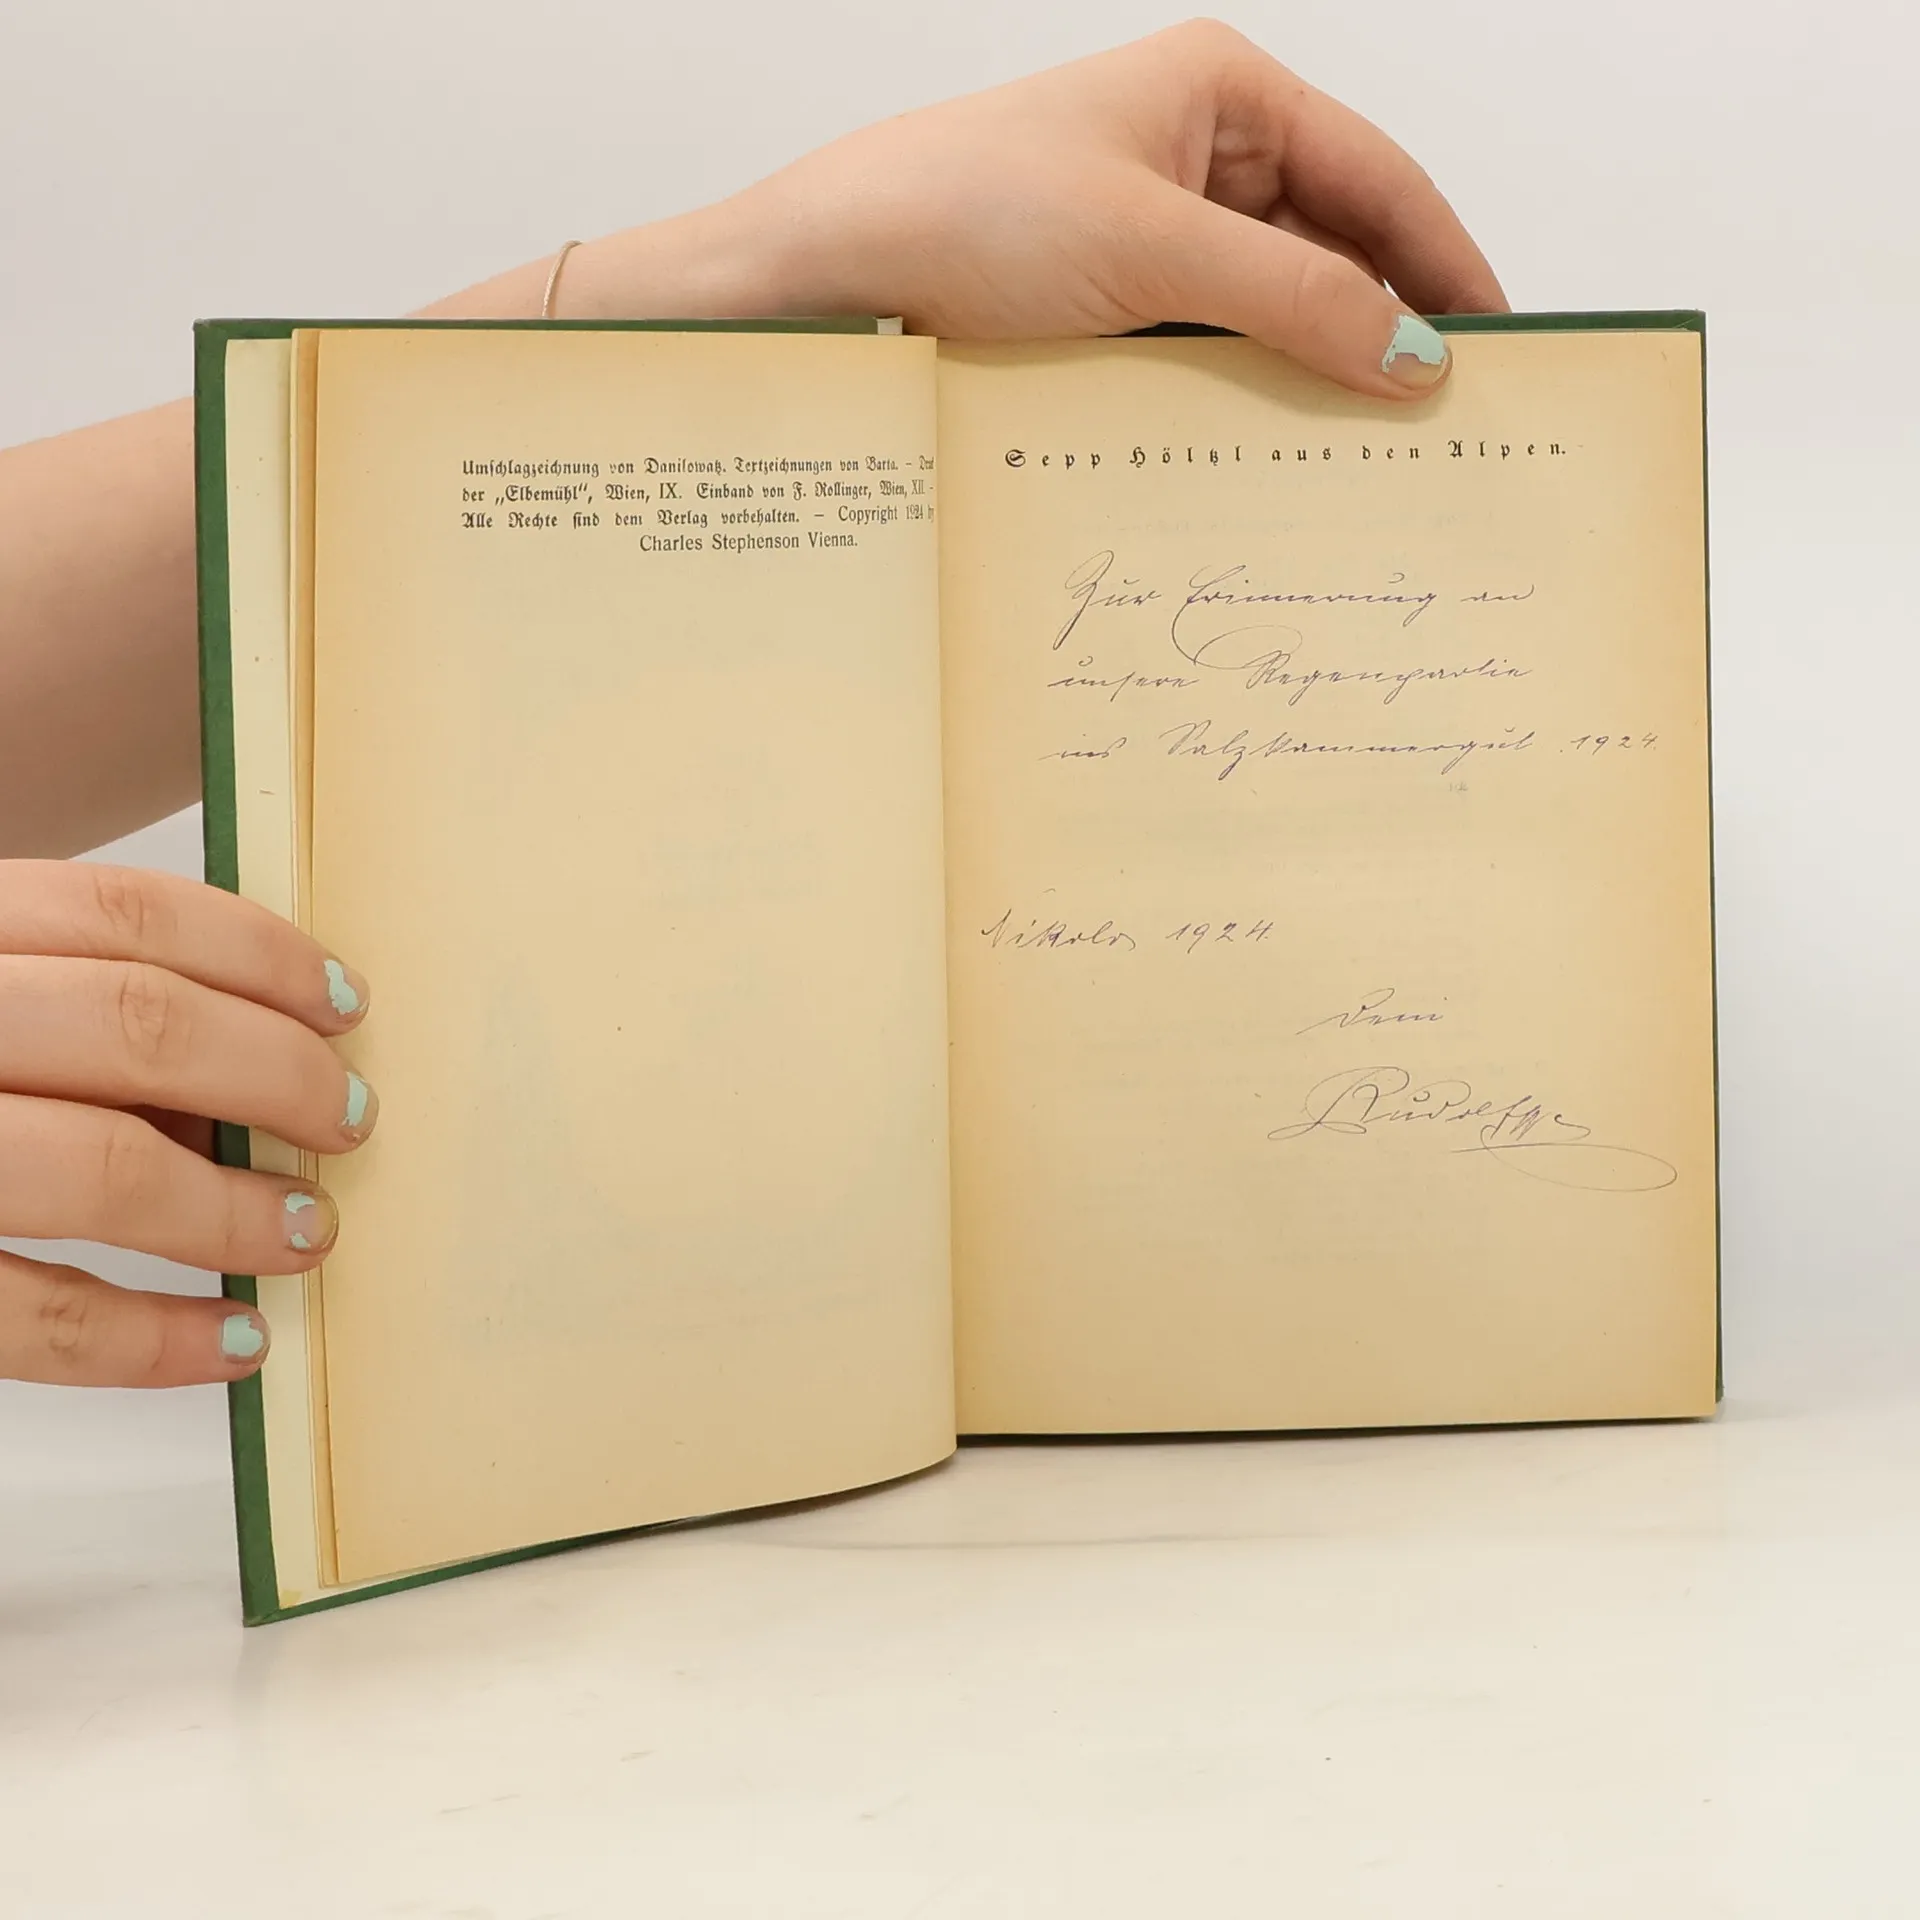 Umschlagzeichnung von Danilowatz. Textzeichnungen von Barta. – Druck
der „Elbemühl“, Wien, IX. Einband von F. Rollinger, Wien, XII –
Alle Rechte sind dem Verlag vorbehalten. – Copyright 1924 by
Charles Stephenson Vienna.
Sepp Höltzl aus den Alpen.
Zur Erinnerung an
unsere Regenpartie
ins Salzkammergut 1924.
Nikolo 1924.
Dein
Rudolf